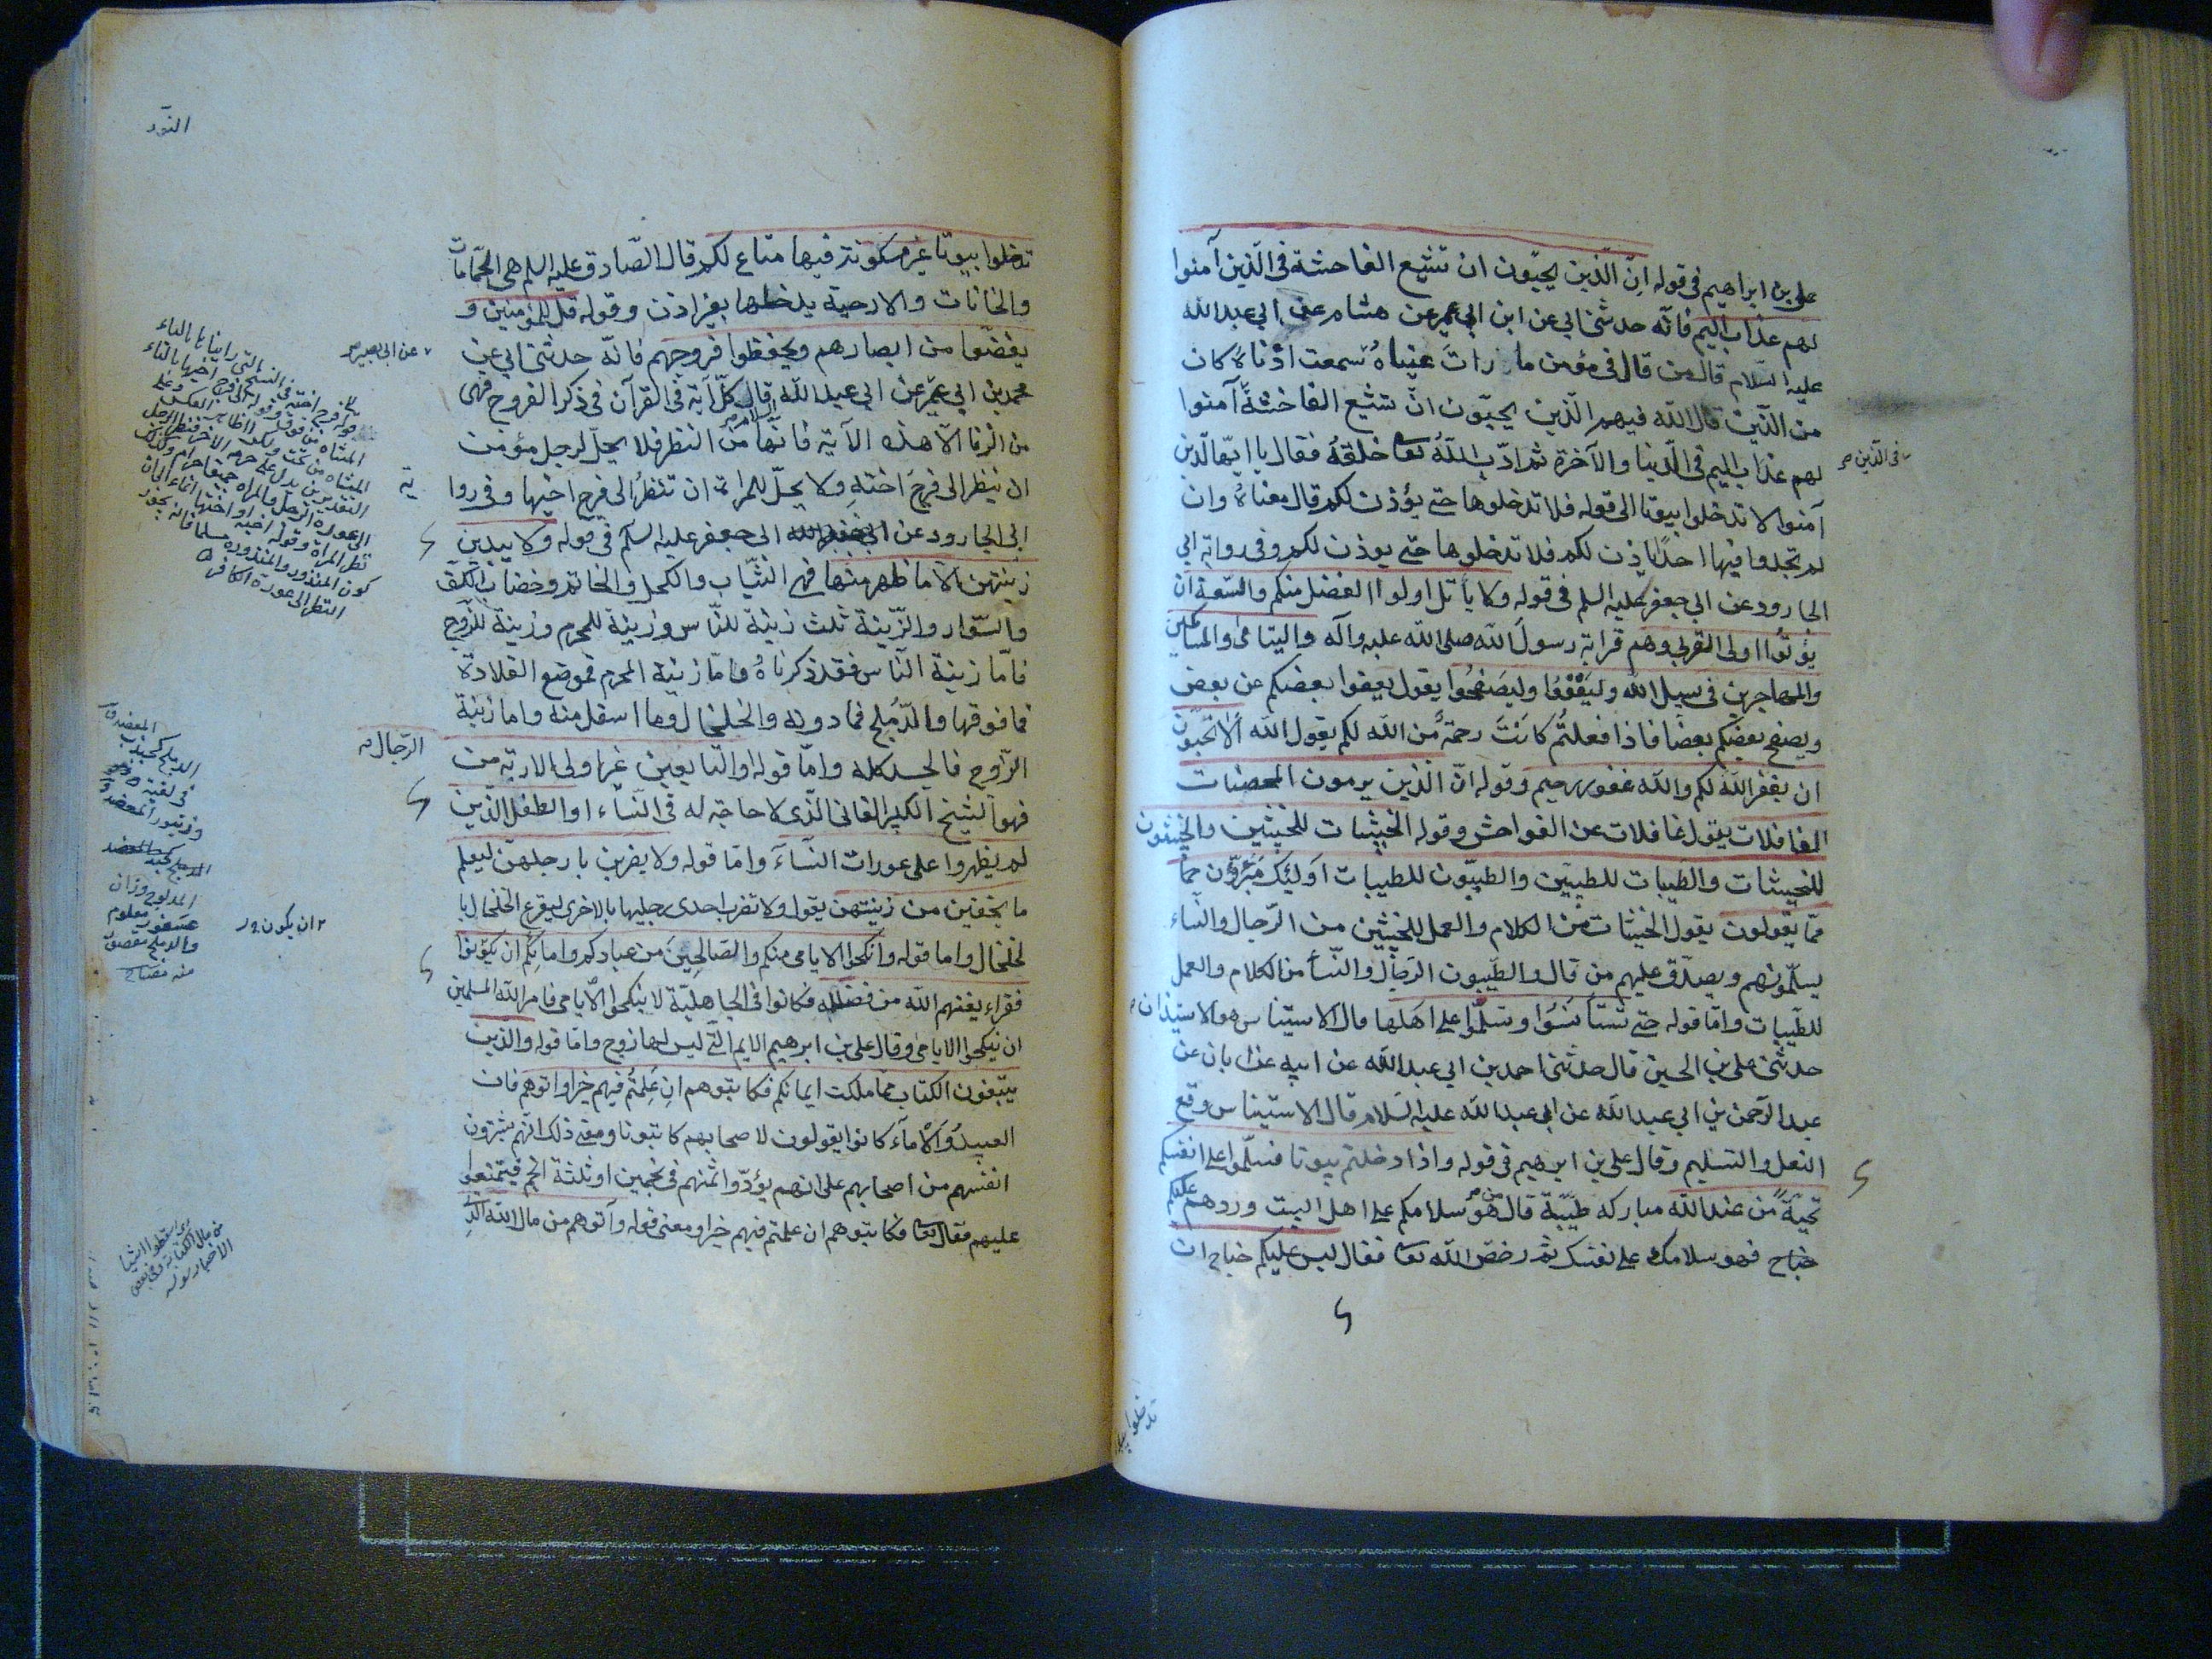 علي بن ابراهيم في قوله انّ الّذين يحبّون ان تشيع الفاحشة في الّذين آمنوا
لهم عذاب اليم فانّه حدثني ابي عن ابن ابي عمير عن هشام عن ابي عبد الله
عليه السلام قال من قال في مؤمن ما رات عيناه وسمعت اذناه كان
من الّذين قال الله فيهم الّذين يحبّون انّ تشيع الفاحشة آمنوا
في الّذين
لهم عذاب اليم في الدّنيا والآخرة ثم ادّب الله تعا خلقه فقال يا ايّها الّذين
آمنوا لا تدخلوا بيوتا الى قوله فلا تدخلوها حتى يؤذن لكم قال معناه وان
لم تجدوا فيها احدًا ياذن لكم فلا تدخلوها حتى يوذن لكم وفي رواية ابي
الجارود عن ابي جعفر عليه السلم في قوله ولا يأتل اولوا الفضل منكم والسّعة ان
يؤتوا اولى القربى وهم قرابة رسول الله صلى الله عليه وآله واليتامى والمساكين
والمهاجرين في سبيل الله وليعفوا وليصفحوا يقول يعفوا بعضكم عن بعض
ويصفح بعضكم بعضا فاذا فعلتم كانت رحمة من الله لكم يقول الله ألا تحبّون
ان يغفر الله لكم والله غفور رحيم وقوله انّ الّذين يرمون المحصنات
الغافلات يقول غافلات عن الفواحش وقوله الخبيثات للخبيثين والخبيثون
للخبيثات والطيبات للطيبين والطيبون للطيبات اولئك مبرّؤن ممّا
ممّا يقولون يقول الخبيثات من الكلام والعمل للخبيثين من الرّجال والنّساء
يسلّمونهم ويصدّق عليهم من قال والطّيبون الرّجال والنّسآ من الكلام والعمل
للطّيبات وامّا قوله حتى تستأنسوا وتسلّموا على اهلها قال الاستيناس هو الاستيذان
حدثني علي بن الحسين قال حدثني احمد بن ابي عبد الله عن ابيه عن ابان عن
عبد الرّحمن بن ابي عبد الله عن ابي عبد الله عليه السّلام قال الاستيناس وقع
النعل والتسليم وقال علي بن ابرهيم في قوله واذا دخلتم بيوتا فسلّموا على انفسكم
تحيّةً من عند الله مباركه طيّبة قال هو سلامكم على اهل البيت وردهم عليكم
فهو سلامك على نفسك ثم رخّص الله تعا فقال ليس عليكم جناح ان
تدخلوا
النّور
تدخلوا بيوتا غير مسكونة فيها متاع لكم قال الصّادق عليه السلم هي الحمّامات
والخانات والارحية يدخلها بغير اذن وقوله قل للمؤمنين و
يغضّوا من ابصارهم ويحفظوا فروجهم فانّه حدثني ابي عن
عن ابي بصير
محمد بن ابي عمير عن ابي عبد الله قال كلّ آية في القرآن في ذكر الفروج فهي
من الزنا الّا هذه الآية فانّها من النظر فلا يحلّ لرجل مؤمن
ان ينظر الى فرج اخته ولا يحلّ للمراة ان تنظر الى فرج اخيها وفي روا
ية
ابي الجارود عن ابي جعفر عليه السّلم في قوله ولا يبدين
زينتهن الّا ما ظهر منها فهي الثيّاب والكحل والخاتم وخضاب الكفّ
والسّوار والزّينة ثلث زينة للنّاس وزينة للمحرم وزينة للزّوج
فامّا زينة النّاس فقد ذكرناه وامّا زينة المحرم فموضع القلادة
فما فوقها والدّملج فما دونه والخلخال وما اسفل منه واما زينة
الزّوج فالجسد كله وامّا قوله او التّابعين غير اولى الاربة من
الرّجال
فهو الشيخ الكبير الفاني الّذي لا حاجة له في النّسآء او الطفل الّذين
لم يظهروا على عورات النّسآء وامّا قوله ولا يضربن بارجلهنّ ليعلم
ما يخفين من زينتهنّ يقول ولا تضرب احدى رجليها بالاخرى ليقرع الخلخال با
لخلخال واما قوله وانكحوا الايامى منكم والصّالحين من عبادكم وامائكم ان يكونوا
فقراء يغنهم الله من فضله فكانوا في الجاهليّة لا ينكحوا الايامى فامر الله المسلمين
ان ينكحوا الايامى وقال علي بن ابرهيم الايم الّتي ليس لها زوج وامّا قوله والّذين
يبتغون الكتاب ممّا ملكت ايمانكم فكاتبوهم ان علمتم فيهم خيرا واتوهم فان
العبيد والامآء كانوا يقولون لاصحابهم كاتبونا ومعنى ذلك انّهم يشترون
انفسهم من اصحابهم على انهم يؤدّوا ثمنهم في نجمين او ثلثة انجم فيمتنعوا
عليهم فقال تعا فكاتبوهم ان علمتم فيهم خيرا ومعنى قوله وآتوهم من مال الله الّذي
ان يكون
النظر الى عورة الكافر